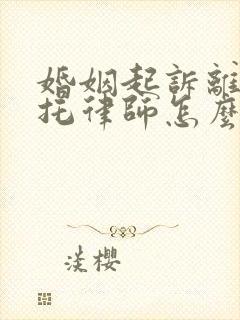 婚姻起訴離
托律師怎麼
淡櫻